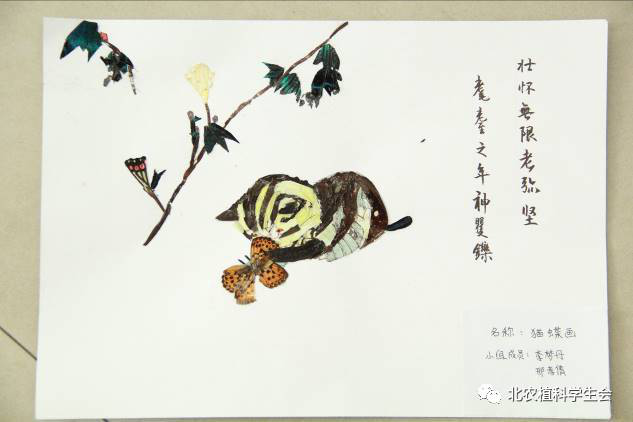 壮怀無限老弥坚
耄耋之年神矍鑠
名称：猫蝶画
小组成员：李梦丹
北农植科学生会